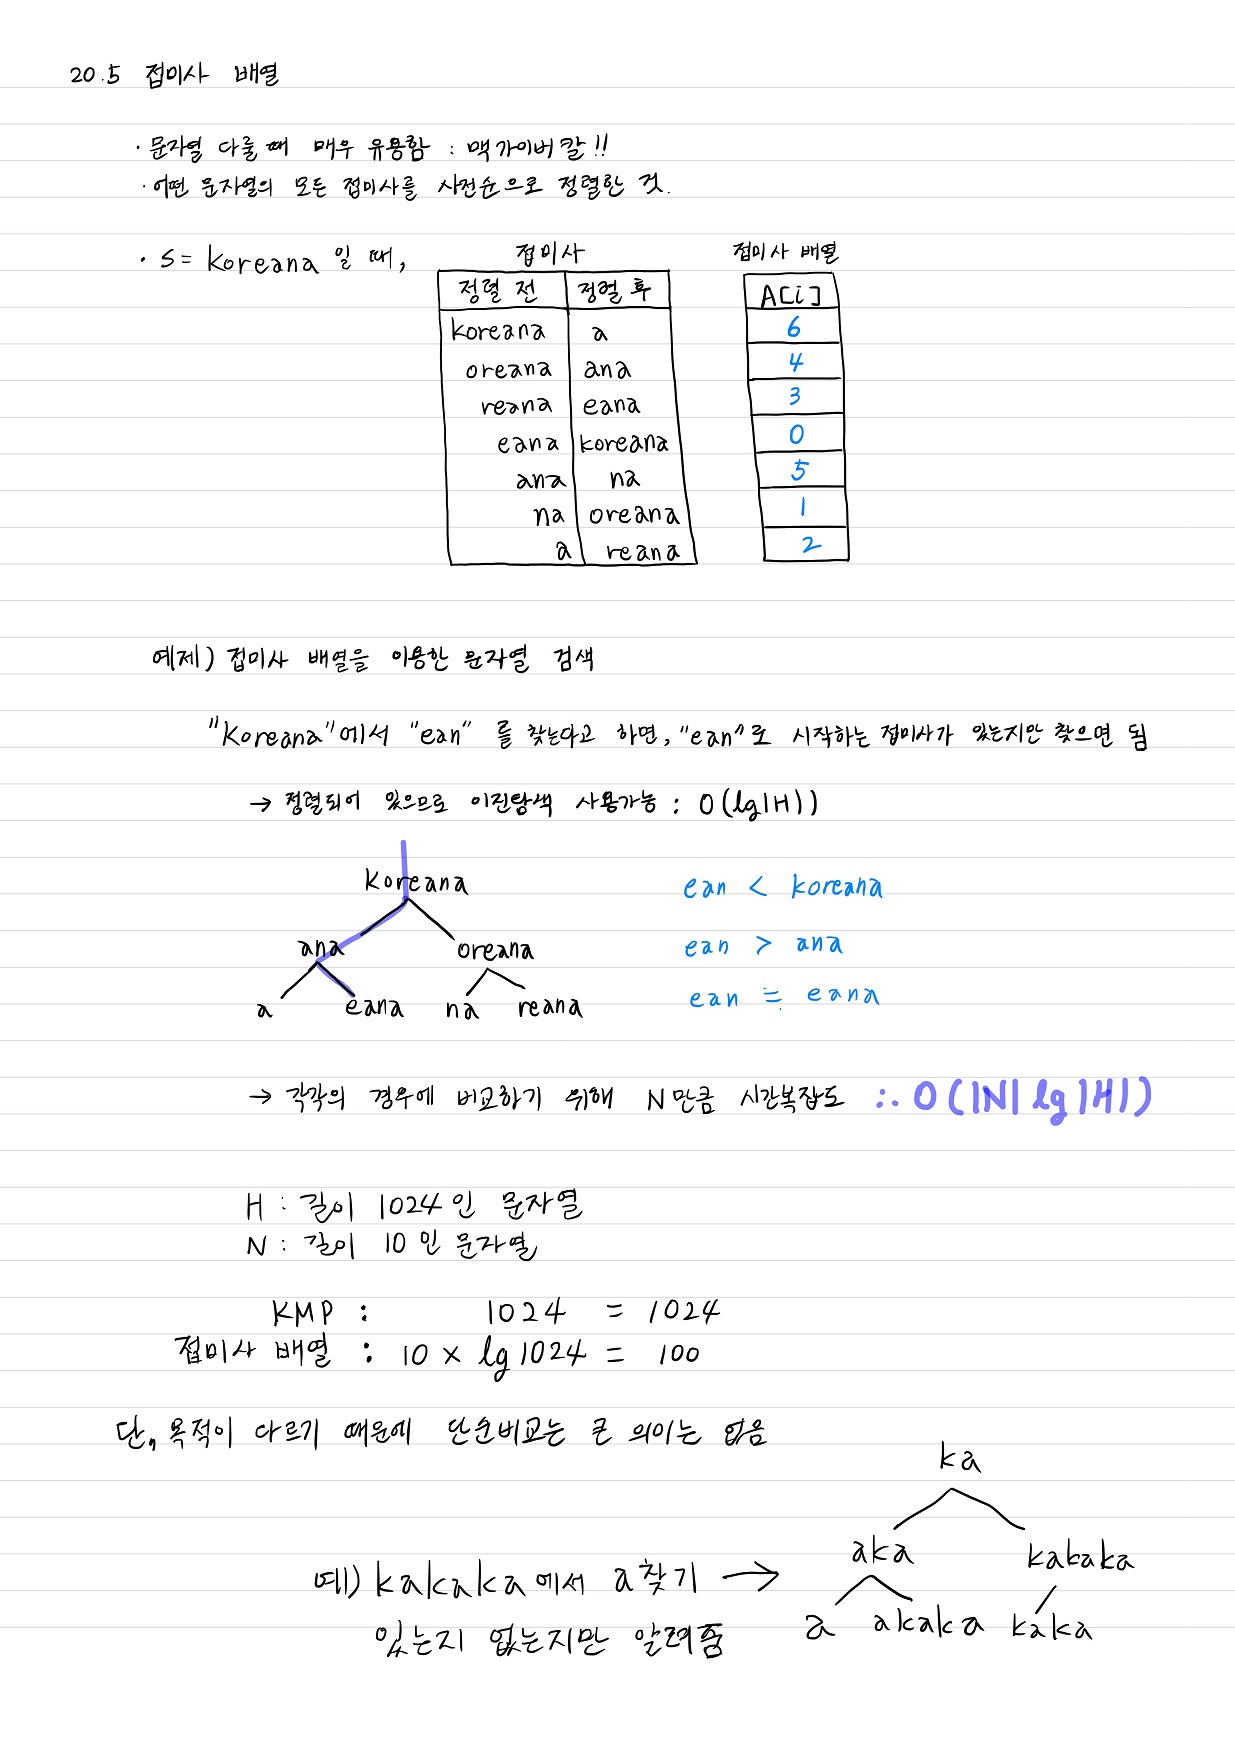 20.5 접미사 배열
· 문자열 다룰 때 매우 유용함 : 맥가이버칼!!
· 어떤 문자열의 모든 접미사를 사전순으로 정렬한 것.
· S = koreana 일 때,
접미사
접미사 배열
정렬 전 정렬 후 A[i]
koreana a 6
oreana ana 4
reana eana 3
eana koreana 0
ana na 5
na oreana 1
a reana 2
예제) 접미사 배열을 이용한 문자열 검색
"Koreana"에서 "ean" 를 찾는다고 하면, "ean"로 시작하는 접미사가 있는지만 찾으면 됨
→ 정렬되어 있으므로 이진탐색 사용가능 : O(lg|H|)
Koreana ean < koreana
ana oreana ean > ana
a eana na reana ean ≒ eana
→ 각각의 경우에 비교하기 위해 N만큼 시간복잡도 ∴ O(|N| lg |H|)
H : 길이 1024인 문자열
N : 길이 10인 문자열
KMP : 1024 = 1024
접미사 배열 : 10 × lg 1024 = 100
단, 목적이 다르기 때문에 단순비교는 큰 의미는 없음
예) kakaka에서 a찾기 →
있는지 없는지만 알려줌
ka
aka kakaka
a akaka kaka